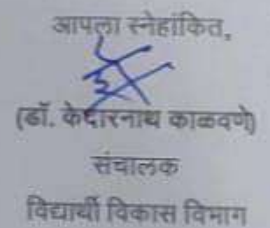 आपला स्नेहांकित,
(डॉ. केदारनाथ काळवणे)
संचालक
विद्यार्थी विकास विभाग